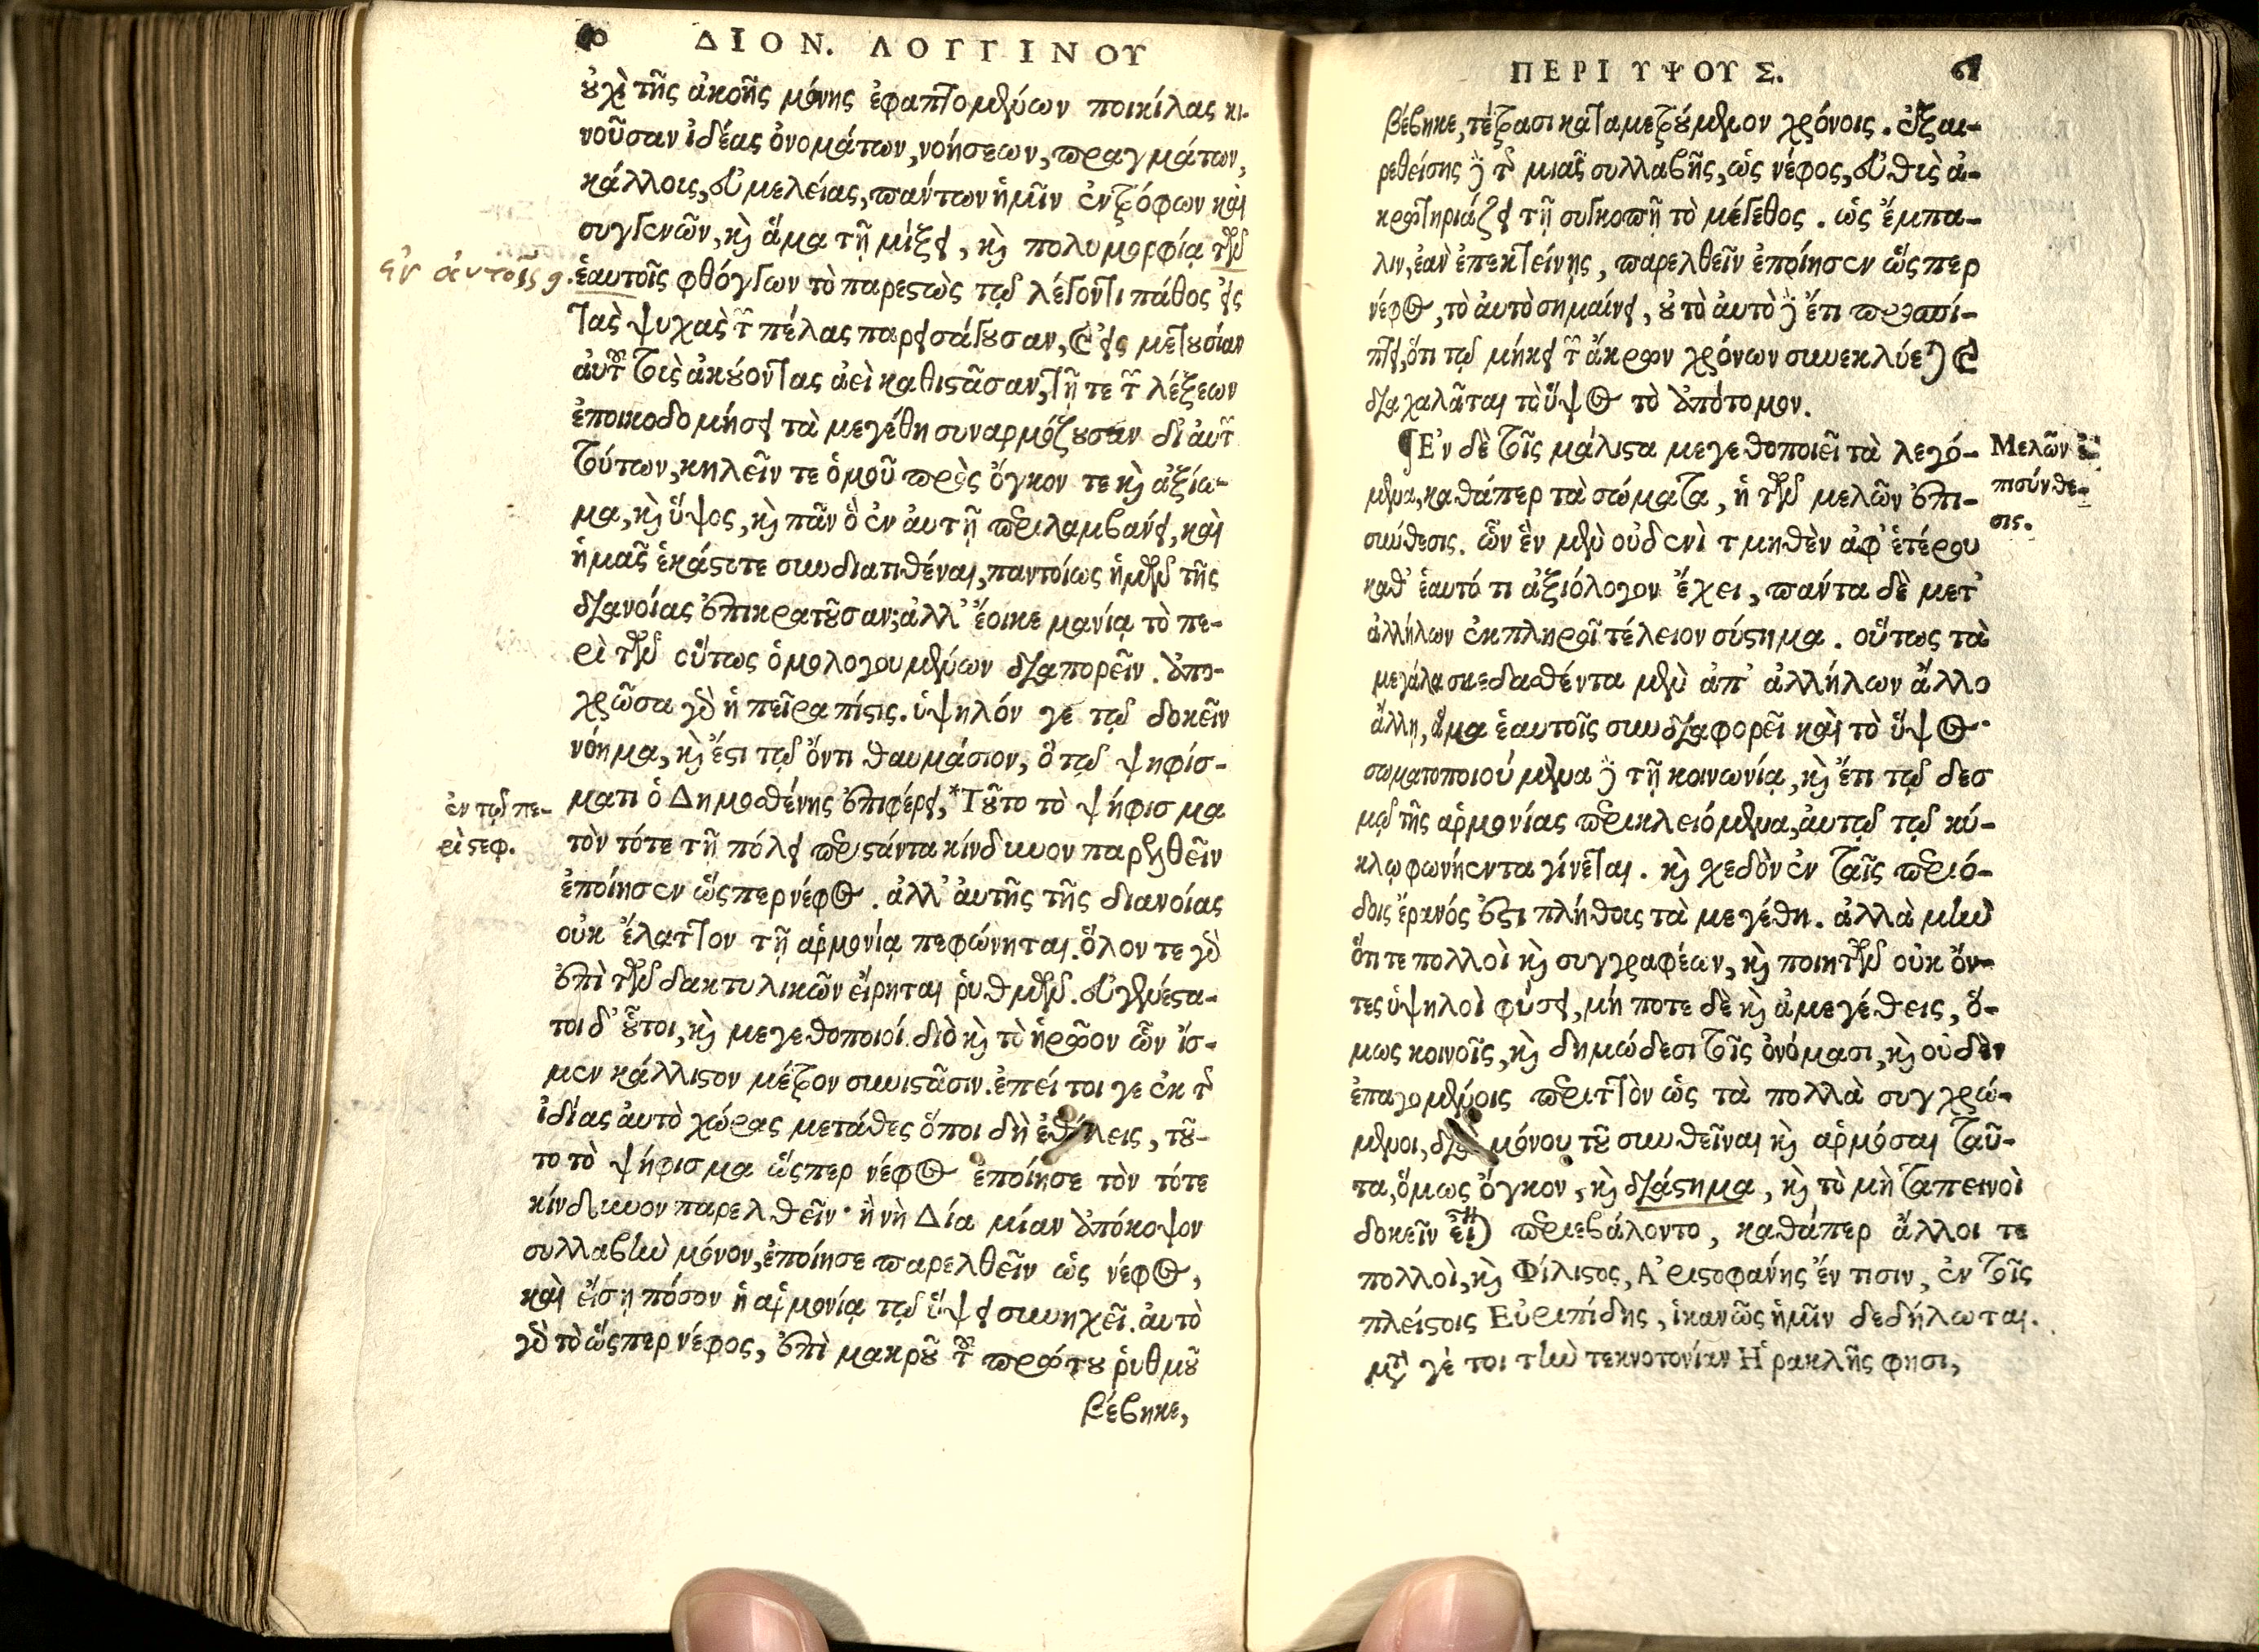 ΔΙΟΝ. ΛΟΓΓΙΝΟΥ
οὐχὶ τῆς ἀκοῆς μόνης ἐφαπτομένων ποικίλας κι-
νοῦσαν ἰδέας ὀνομάτων, νοήσεων, πραγμάτων,
κάλλοις, εὐμελείας, πάντων ἡμῖν ἐντρόφων καὶ
συγγενῶν, καὶ ἅμα τῇ μίξει, καὶ πολυμορφίᾳ τῶν
ἐν αὐτοῖς
ἑαυτοῖς φθόγγων τὸ παρεστὼς τῷ λέγοντι πάθος εἰς
τὰς ψυχὰς τῶν πέλας παρεισάγουσαν, καὶ εἰς μετουσίαν
αὐτοῦ τοὺς ἀκούοντας ἀεὶ καθιστᾶσαν, τῇ τε τῶν λέξεων
ἐποικοδομήσει τὰ μεγέθη συναρμόζουσαν δι' αὐτῶν
τούτων, κηλεῖν τε ὁμοῦ πρὸς ὄγκον τε καὶ ἀξίω-
μα, καὶ ὕψος, καὶ πᾶν ὃ ἐν αὐτῇ περιλαμβάνει, καὶ
ἡμᾶς ἑκάστοτε συνδιατιθέναι, παντοίως ἡμῶν τῆς
διανοίας ἐπικρατοῦσαν; ἀλλ' ἔοικε μανίᾳ τὸ πε-
ρὶ τῶν οὕτως ὁμολογουμένων διαπορεῖν. ἀπο-
χρῶσα γὰρ ἡ πεῖρα πίστις. ὑψηλόν γε τῷ δοκεῖν
νόημα, καὶ ἔστι τῷ ὄντι θαυμάσιον, ὃ τῷ ψηφίσ-
ματι ὁ Δημοσθένης ἐπιφέρει, *Τοῦτο τὸ ψήφισμα
ἐν τῷ πε-
ρὶ στεφ.
τὸν τότε τῇ πόλει περιστάντα κίνδυνον παρελθεῖν
ἐποίησεν ὥσπερ νέφος. ἀλλ' αὐτῆς τῆς διανοίας
οὐκ ἔλαττον τῇ ἁρμονίᾳ πεφώνηται. ὅλον τε γὰρ
ἐπὶ τῶν δακτυλικῶν εἴρηται ῥυθμῶν. εὐγενέστα-
τοι δ' οὗτοι, καὶ μεγεθοποιοί. διὸ καὶ τὸ ἡρῷον ὧν ἴσ-
μεν κάλλιστον μέτρον συνιστᾶσιν. ἐπεί τοι γε ἐκ τῆς
ἰδίας αὐτὸ χώρας μετάθες ὅποι δὴ ἐθέλεις, τοῦ-
το τὸ ψήφισμα ὥσπερ νέφος ἐποίησε τὸν τότε
κίνδυνον παρελθεῖν· ἢ νὴ Δία μίαν ἀπόκοψον
συλλαβὴν μόνον, ἐποίησε παρελθεῖν ὡς νέφος,
καὶ εἴσῃ πόσον ἡ ἁρμονία τῷ ὕψει συνηχεῖ. αὐτὸ
γὰρ τὸ ὥσπερ νέφος, ἐπὶ μακροῦ τοῦ πρώτου ῥυθμοῦ
βέβηκε,
ΠΕΡΙ ΥΨΟΥΣ. 61
βέβηκε, τέτρασι καταμετρούμενον χρόνοις. ἐξαι-
ρεθείσης δὲ τῆς μιᾶς συλλαβῆς, ὡς νέφος, εὐθὺς ἀ-
κρωτηριάζει τῇ συγκοπῇ τὸ μέγεθος. ὡς ἔμπα-
λιν, ἐὰν ἐπεκτείνῃς, παρελθεῖν ἐποίησεν ὥσπερ
νέφος, τὸ αὐτὸ σημαίνει, οὐ τὸ αὐτὸ δὲ ἔτι προσπί-
πτει, ὅτι τῷ μήκει τῶν ἄκρων χρόνων συνεκλύεται καὶ
διαχαλᾶται τὸ ὕψος τὸ ἀπότομον.
¶Ἐν δὲ τοῖς μάλιστα μεγεθοποιεῖ τὰ λεγό-
Μελῶν ἐ-
πισύνθε-
σις.
μενα, καθάπερ τὰ σώματα, ἡ τῶν μελῶν ἐπι-
σύνθεσις. ὧν ἓν μὲν οὐδενὶ τμηθὲν ἀφ' ἑτέρου
καθ' ἑαυτό τι ἀξιόλογον ἔχει, πάντα δὲ μετ'
ἀλλήλων ἐκπληροῖ τέλειον σύστημα. οὕτως τὰ
μεγάλα σκεδασθέντα μὲν ἀπ' ἀλλήλων ἄλλο
ἄλλη, ἅμα ἑαυτοῖς συνδιαφορεῖ καὶ τὸ ὕψος·
σωματοποιούμενα δὲ τῇ κοινωνίᾳ, καὶ ἔτι τῷ δεσ
μῷ τῆς ἁρμονίας περικλειόμενα, αὐτῷ τῷ κύ-
κλῳ φωνήεντα γίνεται. καὶ σχεδὸν ἐν ταῖς περιό-
δοις ἔρανός ἐστι πλήθοις τὰ μεγέθη. ἀλλὰ μὴν
ὅτι τε πολλοὶ καὶ συγγραφέων, καὶ ποιητῶν οὐκ ὄν-
τες ὑψηλοὶ φύσει, μή ποτε δὲ καὶ ἀμεγέθεις, ὅ-
μως κοινοῖς, καὶ δημώδεσι τοῖς ὀνόμασι, καὶ οὐδὲν
ἐπαγομένοις περιττὸν ὡς τὰ πολλὰ συγχρώ-
μενοι, διὰ μόνου τοῦ συνθεῖναι καὶ ἁρμόσαι ταῦ-
τα, ὅμως ὄγκον, καὶ διάστημα, καὶ τὸ μὴ ταπεινοὶ
δοκεῖν εἶναι περιεβάλοντο, καθάπερ ἄλλοι τε
πολλοὶ, καὶ Φίλιστος, Ἀριστοφάνης ἔν τισιν, ἐν τοῖς
πλείστοις Εὐριπίδης, ἱκανῶς ἡμῖν δεδήλωται.
μετά γέ τοι τὴν τεκνοτονίαν Ἡρακλῆς φησι,